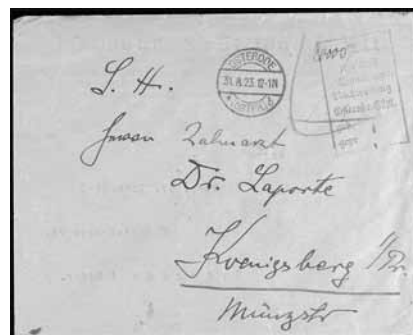 OSTERODE
31.8.23.12-1N
* (OSTPR.) *
S. H.
Herrn Zahnarzt
Dr. Laporte
Koenigsberg i/Pr.
Münzstr